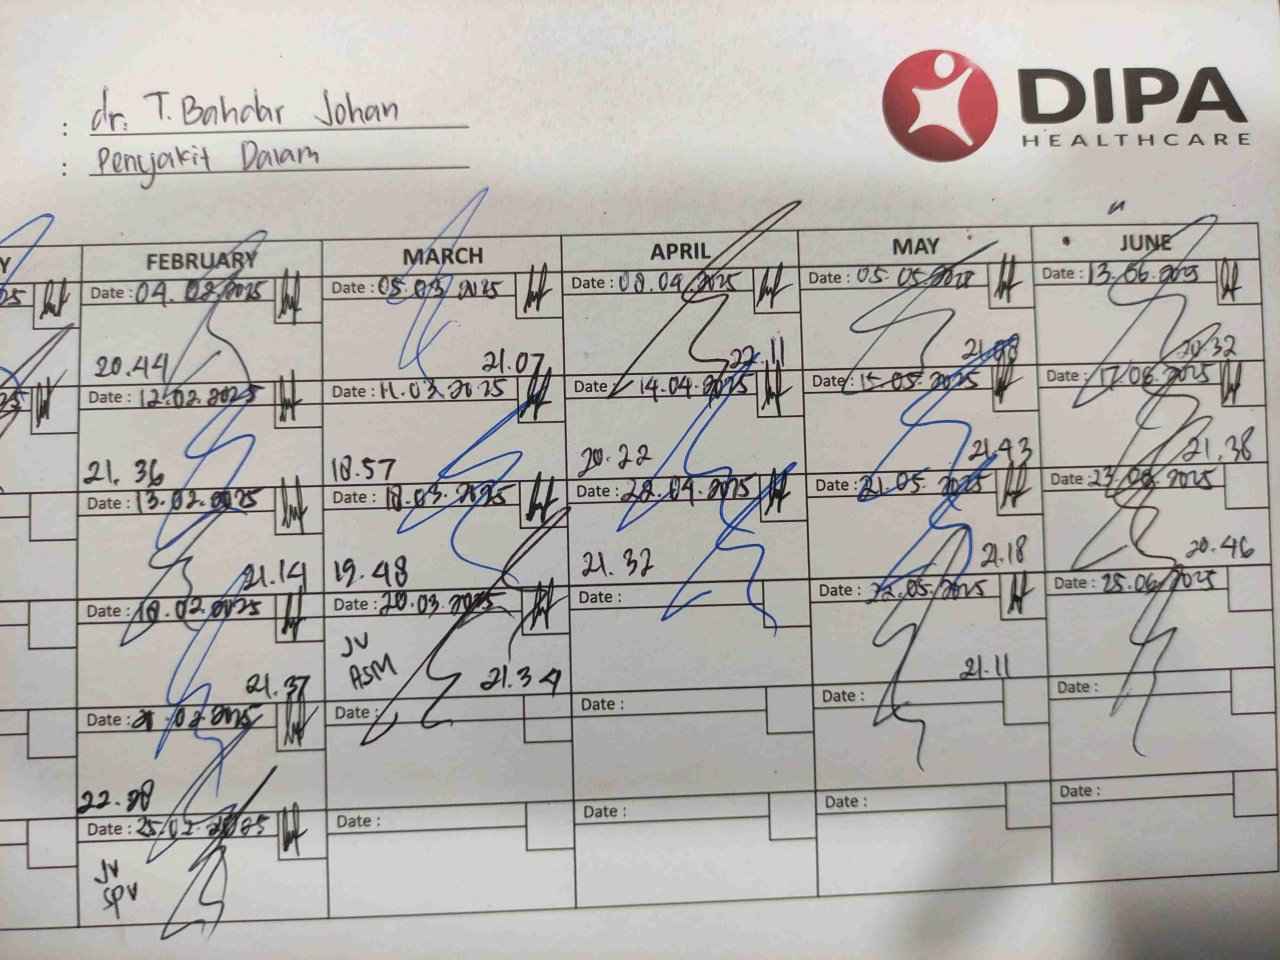 dr. T. Bahdar Johan
: 
Penyakit Dalam
: 
DIPA
HEALTHCARE
FEBRUARY MARCH APRIL MAY JUNE
Date : 04. 02. 2025 Date : 05. 03. 2025 Date : 08. 04. 2025 Date : 05. 05. 2025 Date : 13. 06. 2025
20.44 21.07 22.11 20.32
Date : 12. 02. 2025 Date : 11. 03. 2025 Date : 14. 04. 2025 Date : 15. 05. 2025 Date : 17. 06. 2025
21. 36 18.57 20.22 21.43 21.38
Date : 13. 02. 2025 Date : 18. 03. 2025 Date : 28. 04. 2025 Date : 21. 05. 2025 Date : 23. 06. 2025
21.14 19.48 21.32 21.18 20.46
Date : 18. 02. 2025 Date : 20. 03. 2025 Date : Date : 22. 05. 2025 Date : 25. 06. 2025
21.37 JV
ASM 21.34 21.11
Date : 21. 02. 2025 Date : Date : Date : Date :
22.28
Date : 25. 02. 2025 Date : Date : Date : Date :
JV
SPV